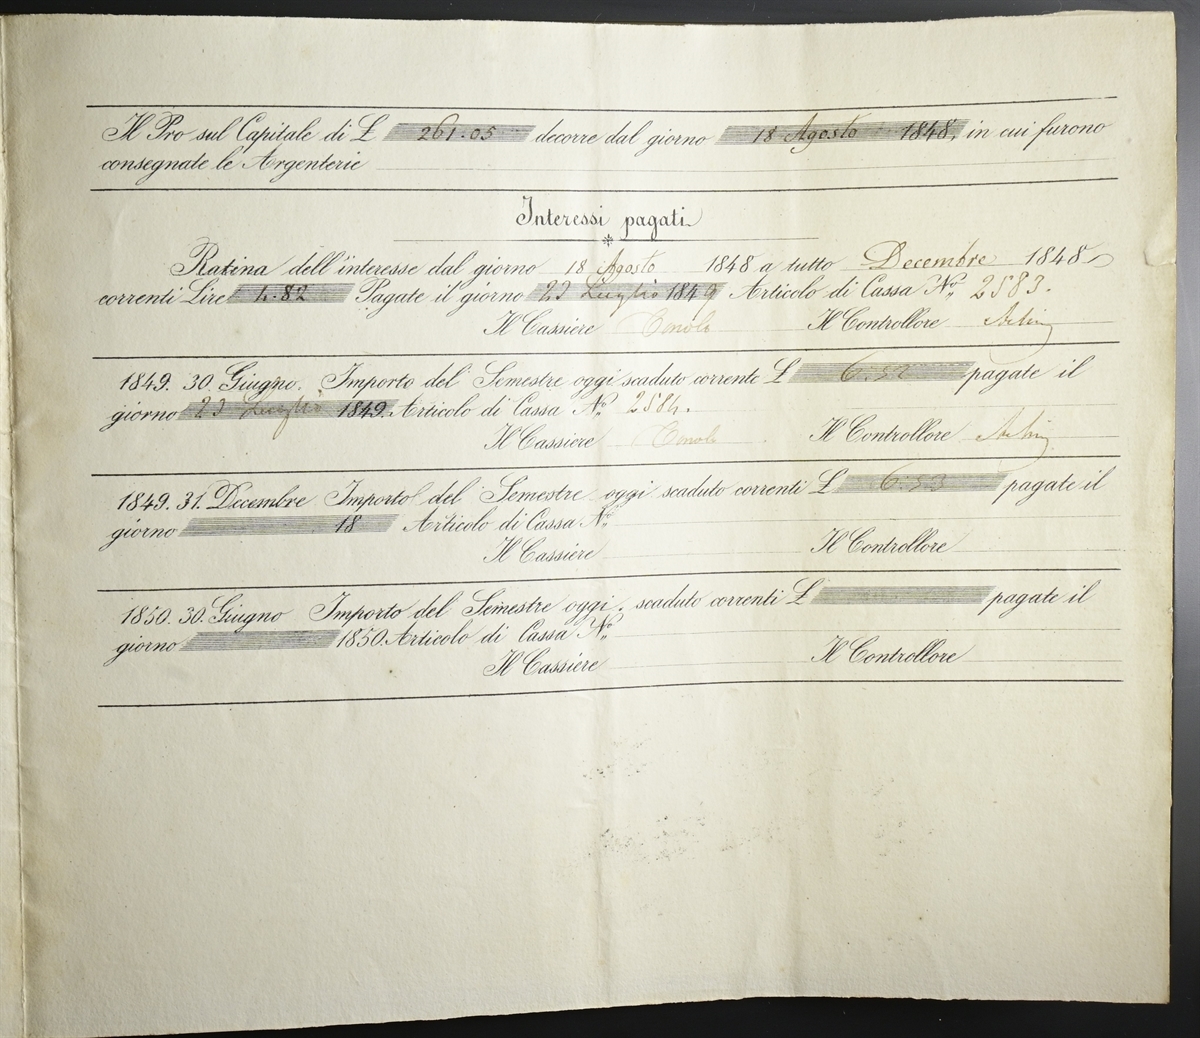 Il Pro sul Capitale di £ 261.05 decorre dal giorno 18 Agosto 1848, in cui furono
consegnate le Argenterie
Interessi pagati
Ratina dell'interesse dal giorno 18 Agosto 1848 a tutto Decembre 1848
correnti Lire 4.82 Pagate il giorno 23 Luglio 1849 Articolo di Cassa No. 2583.
Il Cassiere Il Controllore
1849. 30. Giugno. Importo del Semestre oggi scaduto corrente £ 6:52 pagate il
giorno 23 Luglio 1849. Articolo di Cassa No. 2584.
Il Cassiere Il Controllore
1849. 31. Decembre Importo del Semestre oggi scaduto correnti £ 6:53 pagate il
giorno 18 Articolo di Cassa No.
Il Cassiere Il Controllore
1850. 30. Giugno Importo del Semestre oggi. scaduto correnti £ pagate il
giorno 1850. Articolo di Cassa No.
Il Cassiere Il Controllore